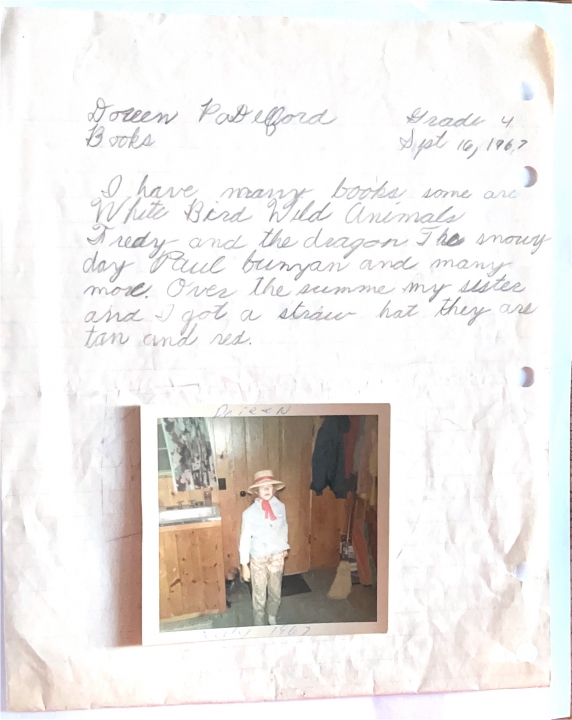 Doreen PaDelford Grade 4
Books Sept 16, 1967
I have many books some are
White Bird Wild Animals
Fredy and the dragon The snowy
day Paul bunyan and many
more. Over the summe my sister
and I got a straw hat they are
tan and red.
Doreen
1967